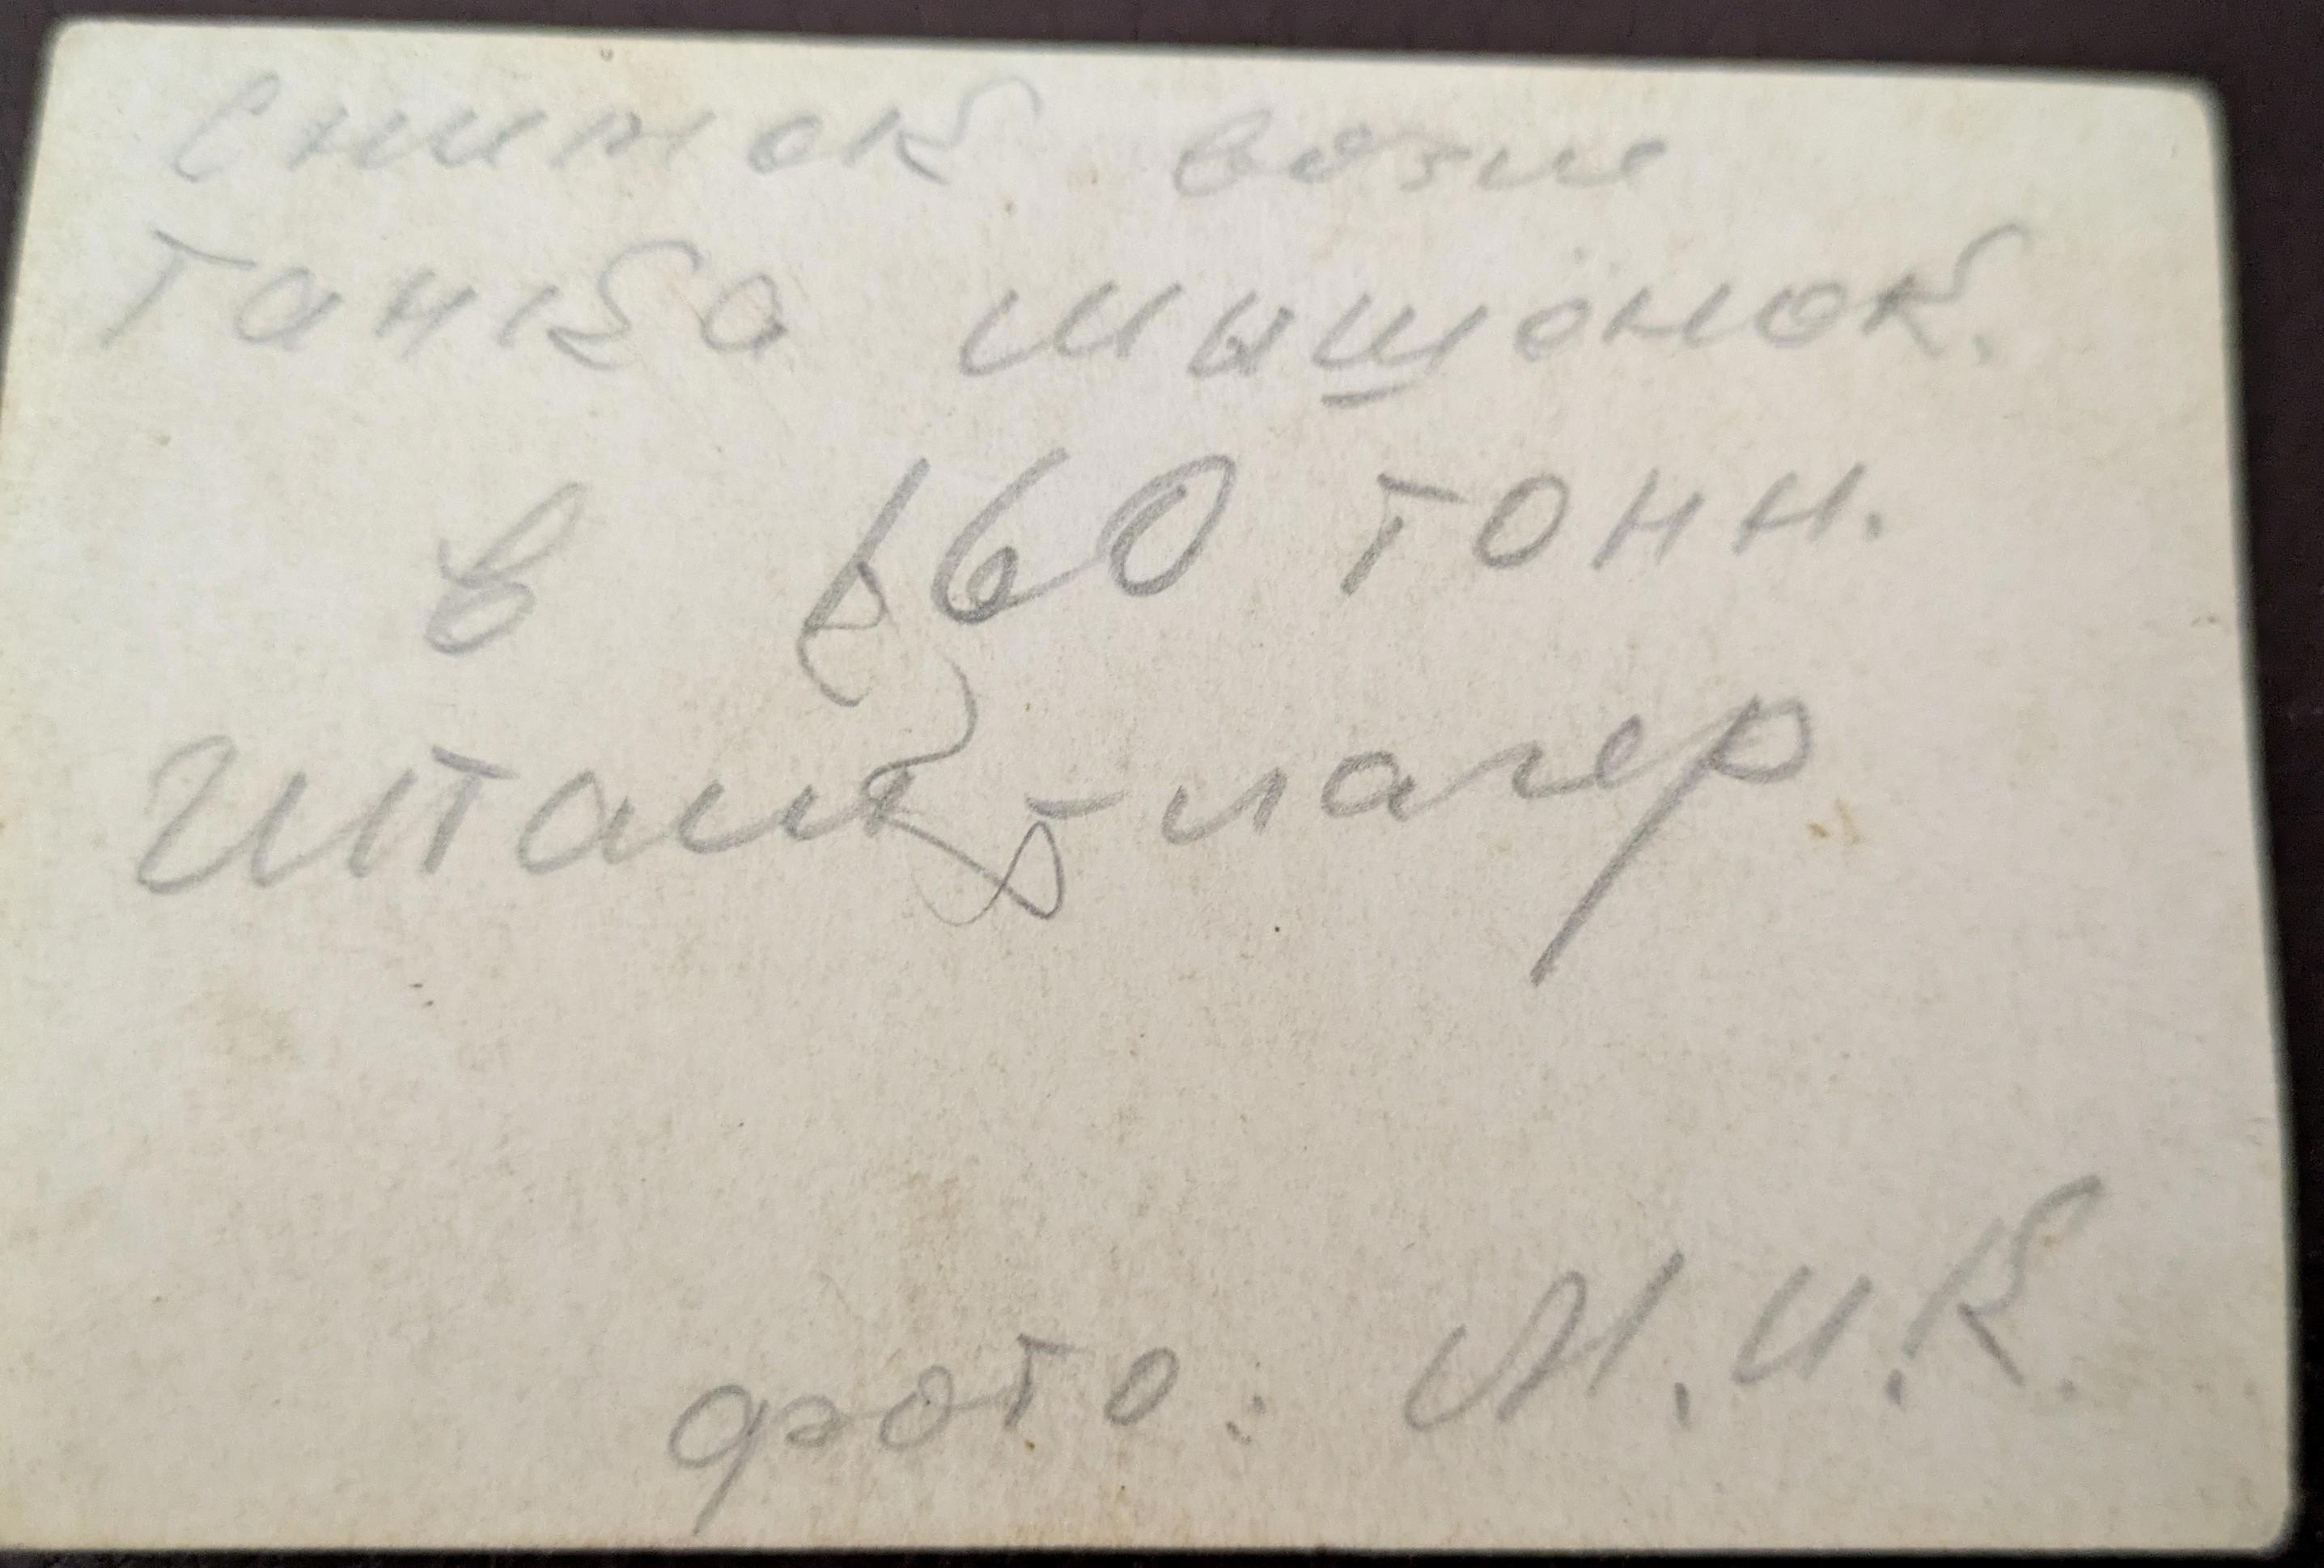 Снимок возле
танка мышонок.
в 160 тонн.
Шталк-лагер
фото: М.И.К.